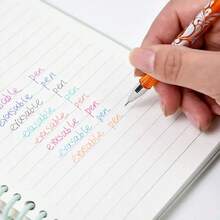 erasable pen
erasable pen
erasable pen
erasable pen
erasable pen
erasable pen
erasable pen